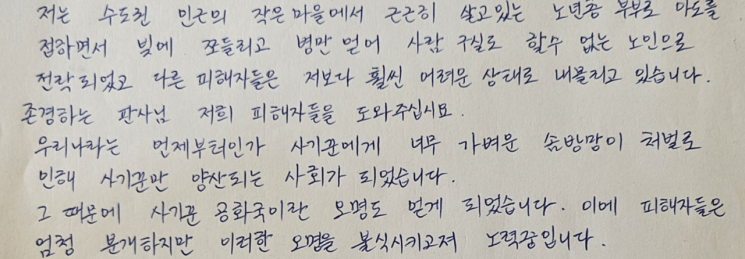 저는 수도권 인근의 작은마을에서 근근히 살고있는 노년층 부부로 아도를
접하면서 빚에 쪼들리고 병만 얻어 사람 구실도 할수 없는 노인으로
전락되었고 다른 피해자들은 저보다 훨씬 어려운 상태로 내몰리고 있습니다.
존경하는 판사님 저희 피해자들을 도와주십시요.
우리나라는 언제부터인가 사기꾼에게 너무 가벼운 솜방망이 처벌로
인해 사기꾼만 양산되는 사회가 되었습니다.
그 때문에 사기꾼 공화국이란 오명도 얻게 되었습니다. 이에 피해자들은
엄청 분개하지만 이러한 오명을 불식시키고져 노력중입니다.